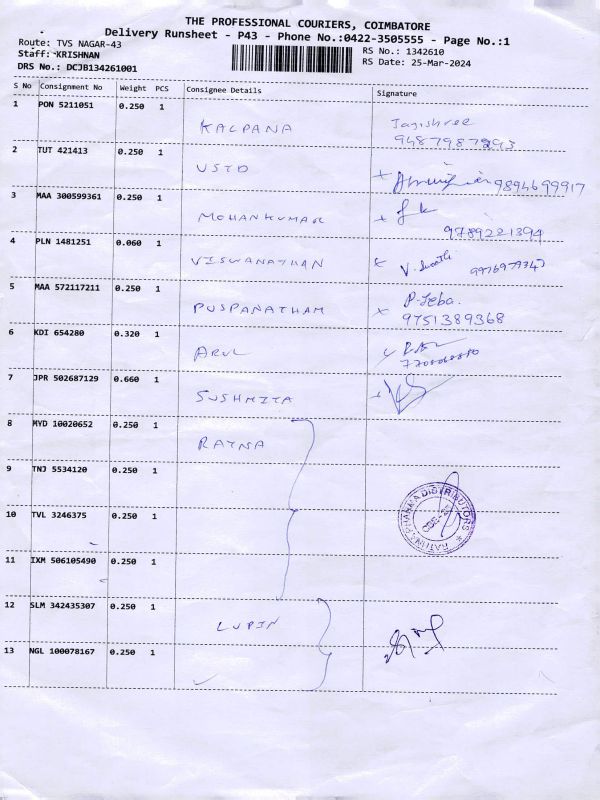 THE PROFESSIONAL COURIERS, COIMBATORE
Delivery Runsheet - P43 - Phone No.:0422-3505555 - Page No.:1
Route: TVS NAGAR-43
Staff: KRISHNAN
DRS No.: DCJB134261001
RS No.: 1342610
RS Date: 25-Mar-2024
S No Consignment No Weight PCS Consignee Details Signature
1 PON 5211051 0.250 1 KALPANA Jayishree
9487987293
2 TUT 421413 0.250 1 USTD 9894699917
3 MAA 300599361 0.250 1 MOHANKUMAR
9789221394
4 PLN 1481251 0.060 1 VISWANATHAN V. Swathi
5 MAA 572117211 0.250 1 PUSPANATHAM P. Jeba.
9751389368
6 KDI 654280 0.320 1 ARUL
7 JPR 502687129 0.660 1 SUSHMITA
8 MYD 10020652 0.250 1 RATNA
9 TNJ 5534120 0.250 1
10 TVL 3246375 0.250 1
11 IXM 506105490 0.250 1
12 SLM 342435307 0.250 1 LUPIN
13 NGL 100078167 0.250 1
RATNA PHARMA DISTRIBUTORS
CBE-25